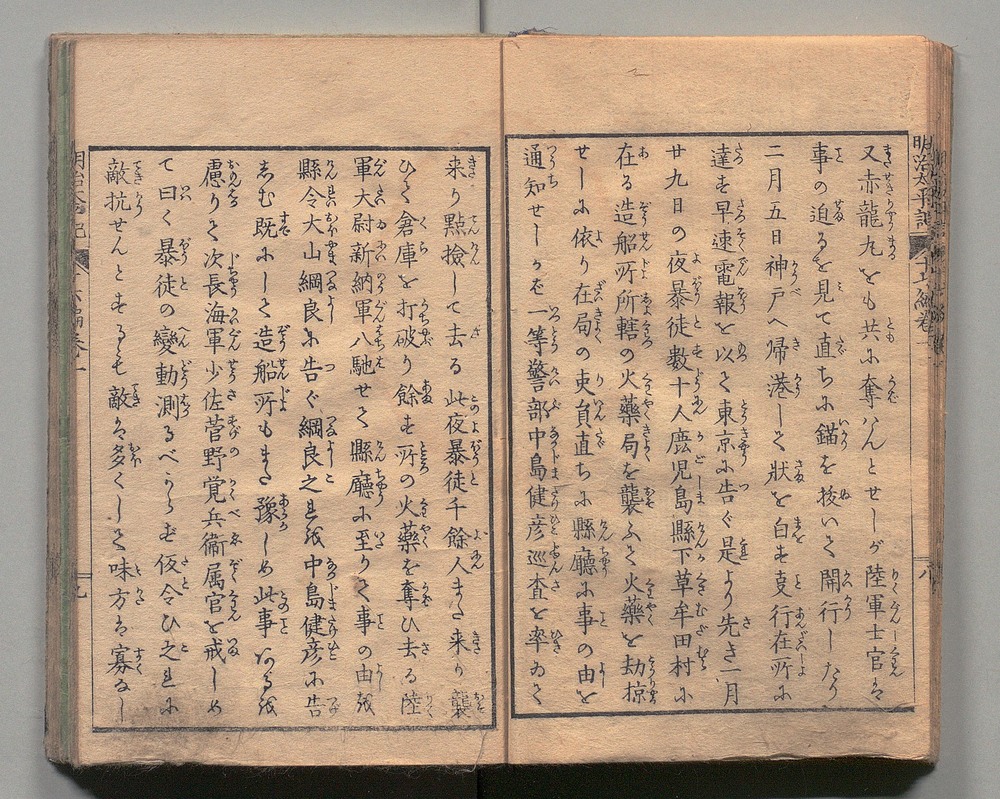 明治太平記
又赤龍丸をも共に奪はんとせしが陸軍士官は
事の迫るを見て直ちに錨を抜いて開行したり
二月五日神戸へ帰港して状を白す是行在所に
達す早速電報を以て東京に告ぐ是より先き一月
廿九日の夜暴徒数十人鹿児島縣下草牟田村に
在る造船所所轄の火藥局を襲ふて火藥を劫掠
せしに依り在局の吏員直ちに縣廳に事の由を
通知せしかば一等警部中島健彦巡査を率ゐて
八
来り點撿して去る此夜暴徒千餘人また来り襲
ひて倉庫を打破り餘す所の火藥を奪ひ去る陸
軍大尉新納軍八馳せて縣廳に至りて事の由を
縣令大山綱良に告ぐ綱良之れを中島健彦に告
しむ既にして造船所もまた豫しめ此事あるを
慮りて次長海軍少佐菅野覚兵衞属官を戒しめ
て曰く暴徒の變動測るべからず仮令ひ之れに
敵抗せんとするも敵は多くして味方は寡なし
九